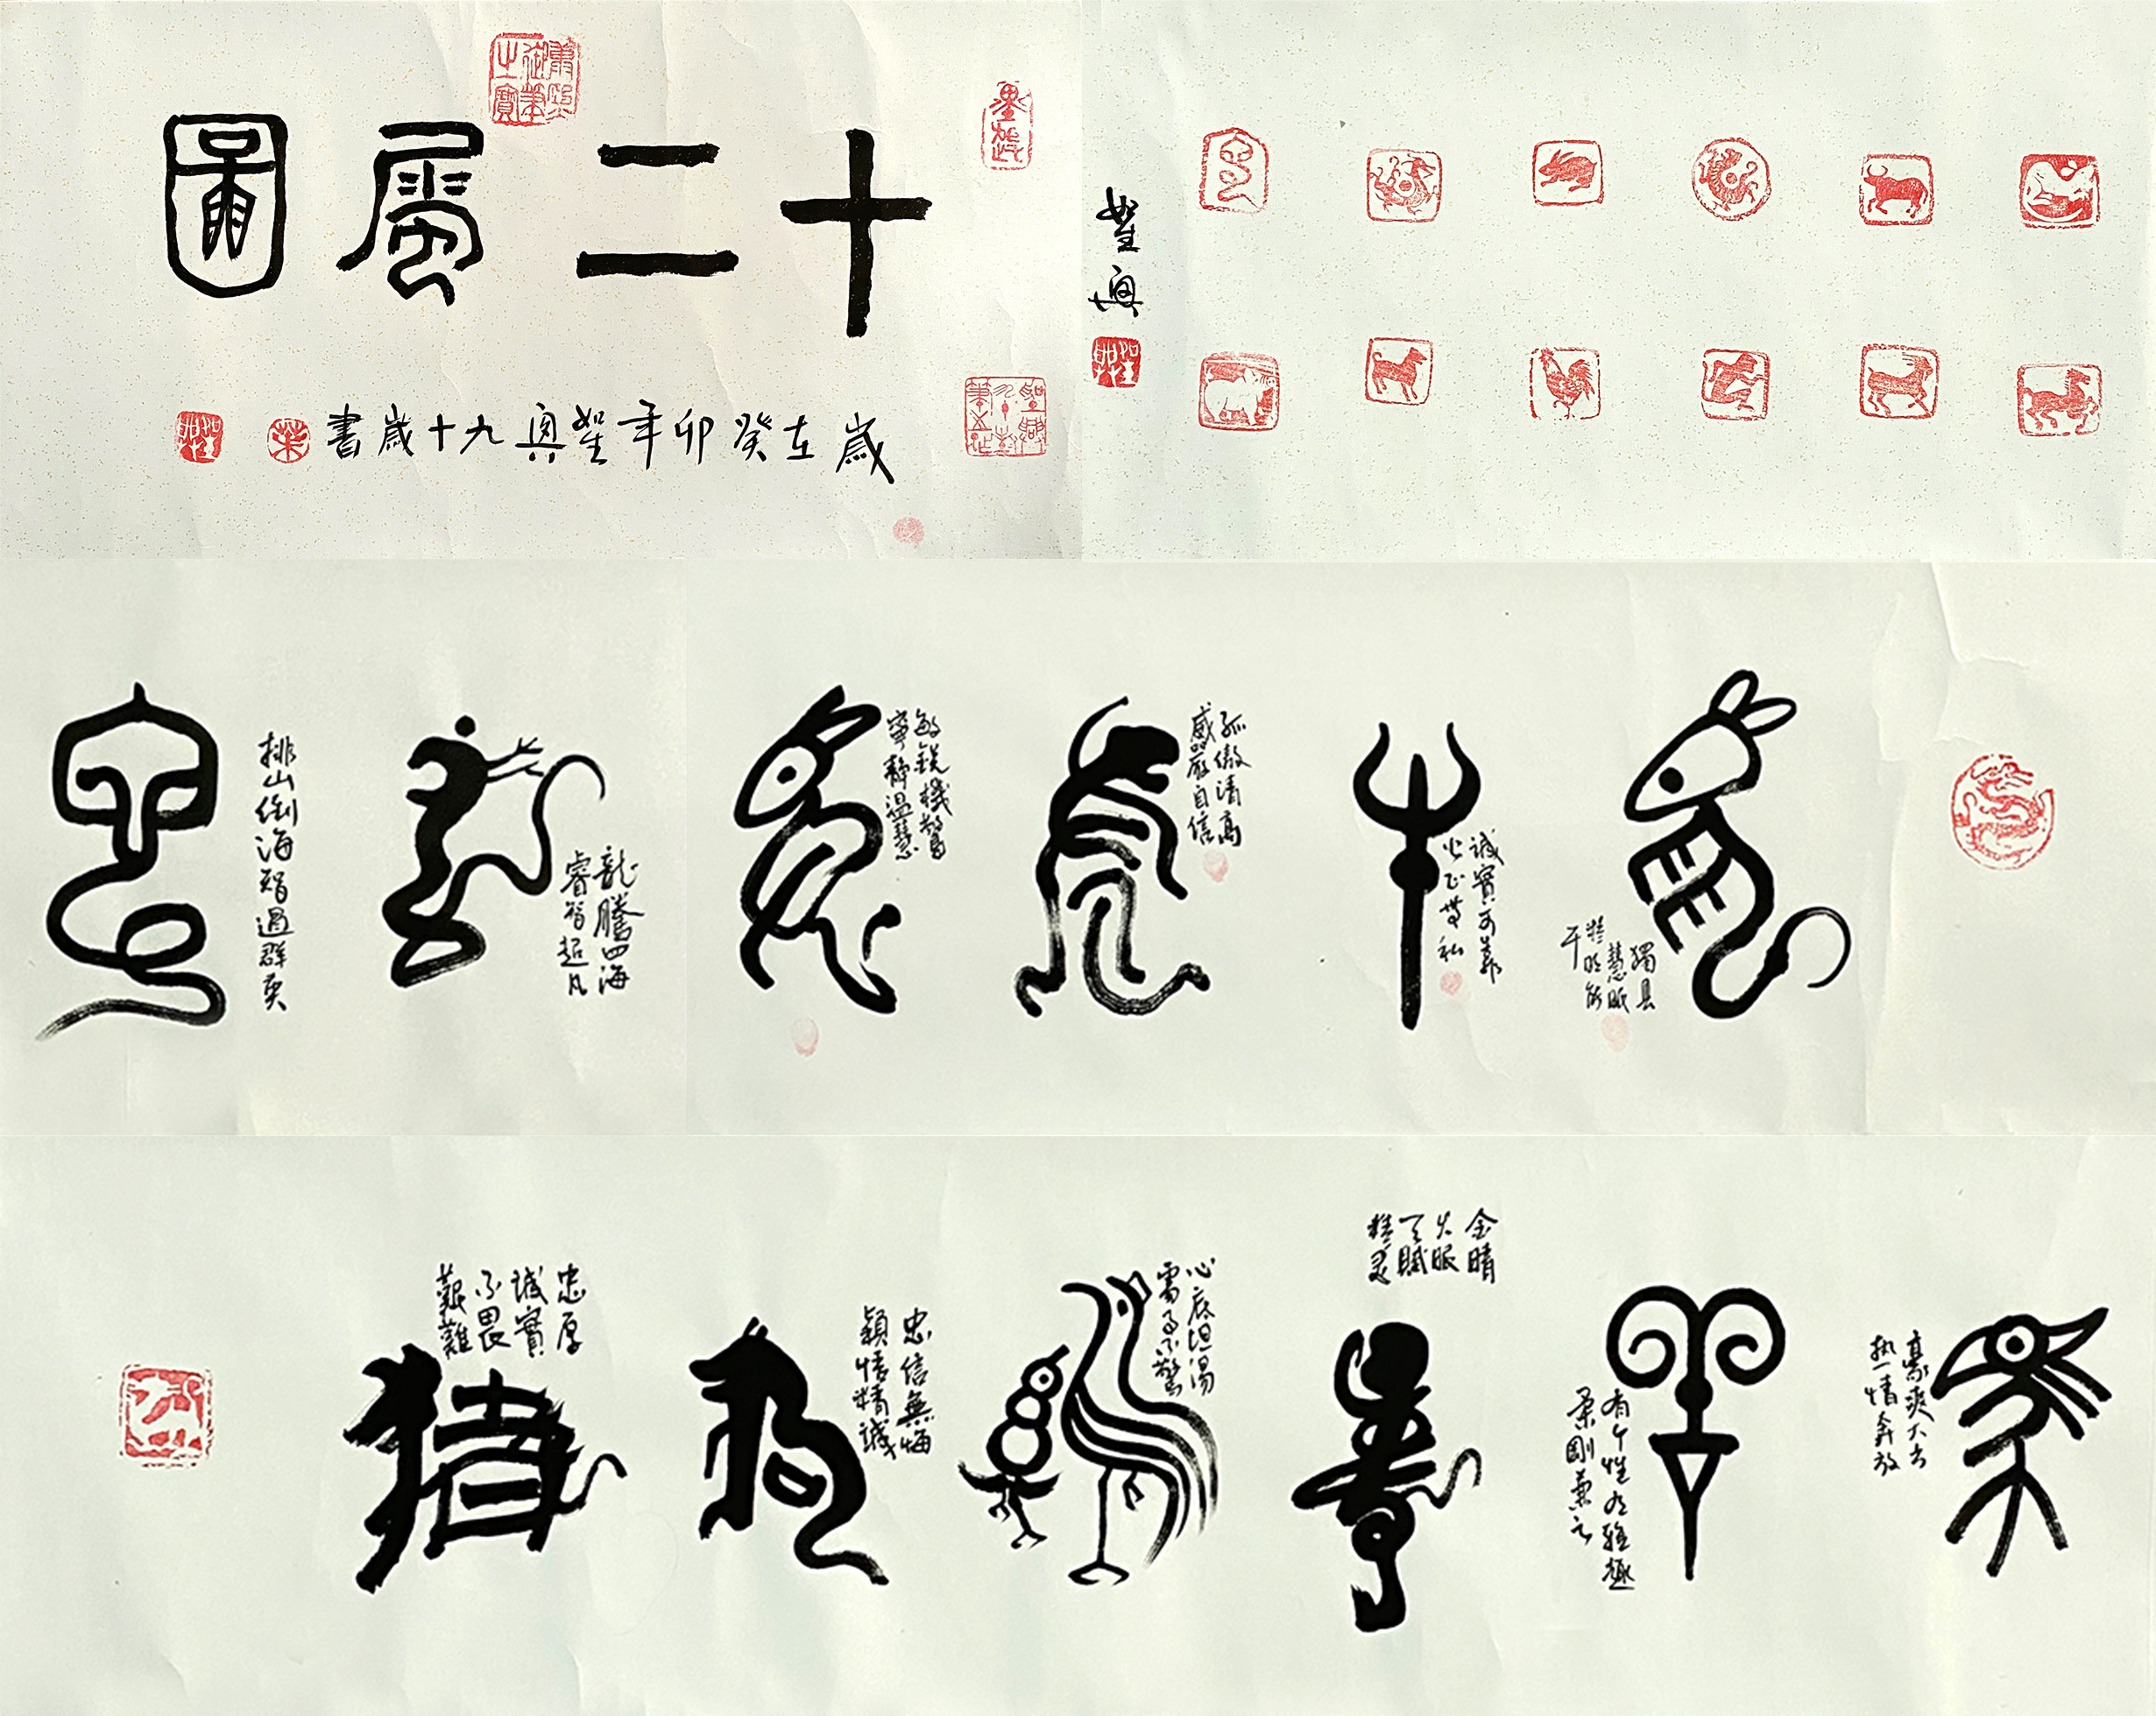 十二属圖
歲在癸卯年聖輿九十歲書
聖輿
獨具
慧眼
精明能
干
誠實可靠
公正無私
孤傲清高
威嚴自信
敏銳機警
寧靜溫慧
龍騰四海
睿智超凡
排山倒海智過群英
豪爽大方
热情奔放
有个性有雅趣
柔剛兼之
金睛
火眼
天賦
精灵
心底坦湯
雷鳴不驚
忠信無悔
穎悟精誠
忠厚
誠實
不畏
艱難